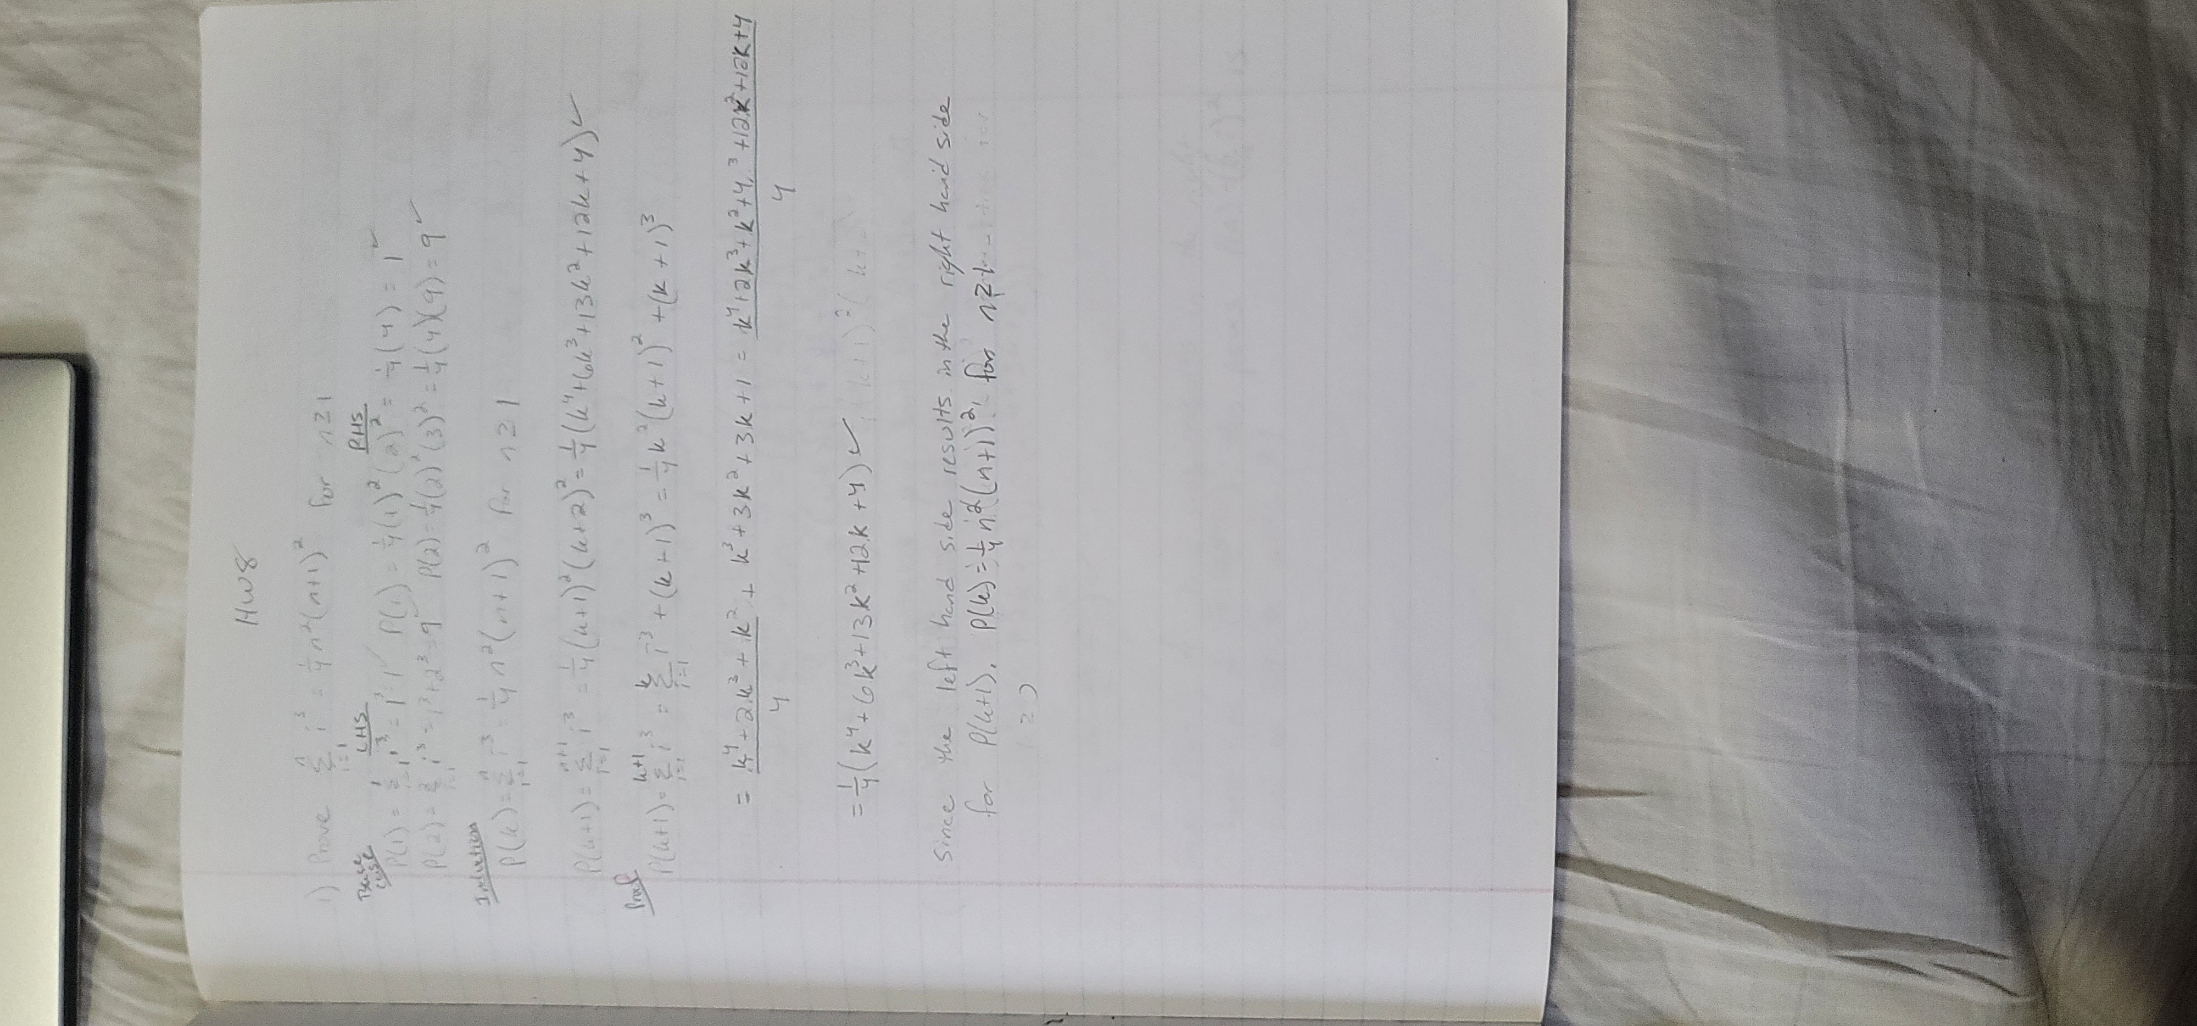 HW8
1) Prove n Σ i=1 i³ = 1/4 n²(n+1)² for n≥1
Base case LHS RHS
P(1) = 1 Σ i=1 i³ = 1³ = 1 ✓ P(1) = 1/4(1)²(2)² = 1/4(4) = 1 ✓
P(2) = 2 Σ i=1 i³ = 1³+2³ = 9 ✓ P(2) = 1/4(2)²(3)² = 1/4(4)(9) = 9 ✓
Induction
P(k) = n Σ i=1 i³ = 1/4 n²(n+1)² for n≥1
P(k+1) = n+1 Σ i=1 i³ = 1/4(k+1)²(k+2)² = 1/4(k⁴+6k³+13k²+12k+4) ✓
Proof
P(k+1) = k+1 Σ i=1 i³ = k Σ i=1 i³ + (k+1)³ = 1/4 k²(k+1)² + (k+1)³
= (k⁴+2k³+k²)/4 + k³+3k²+3k+1 = (k⁴+2k³+k²+4 ³+12k²+12k+4)/4
= 1/4(k⁴+6k³+13k²+12k+4) ✓
Since the left hand side results in the right hand side
for P(k+1). P(k) = 1/4 n²(n+1)², for n≥1